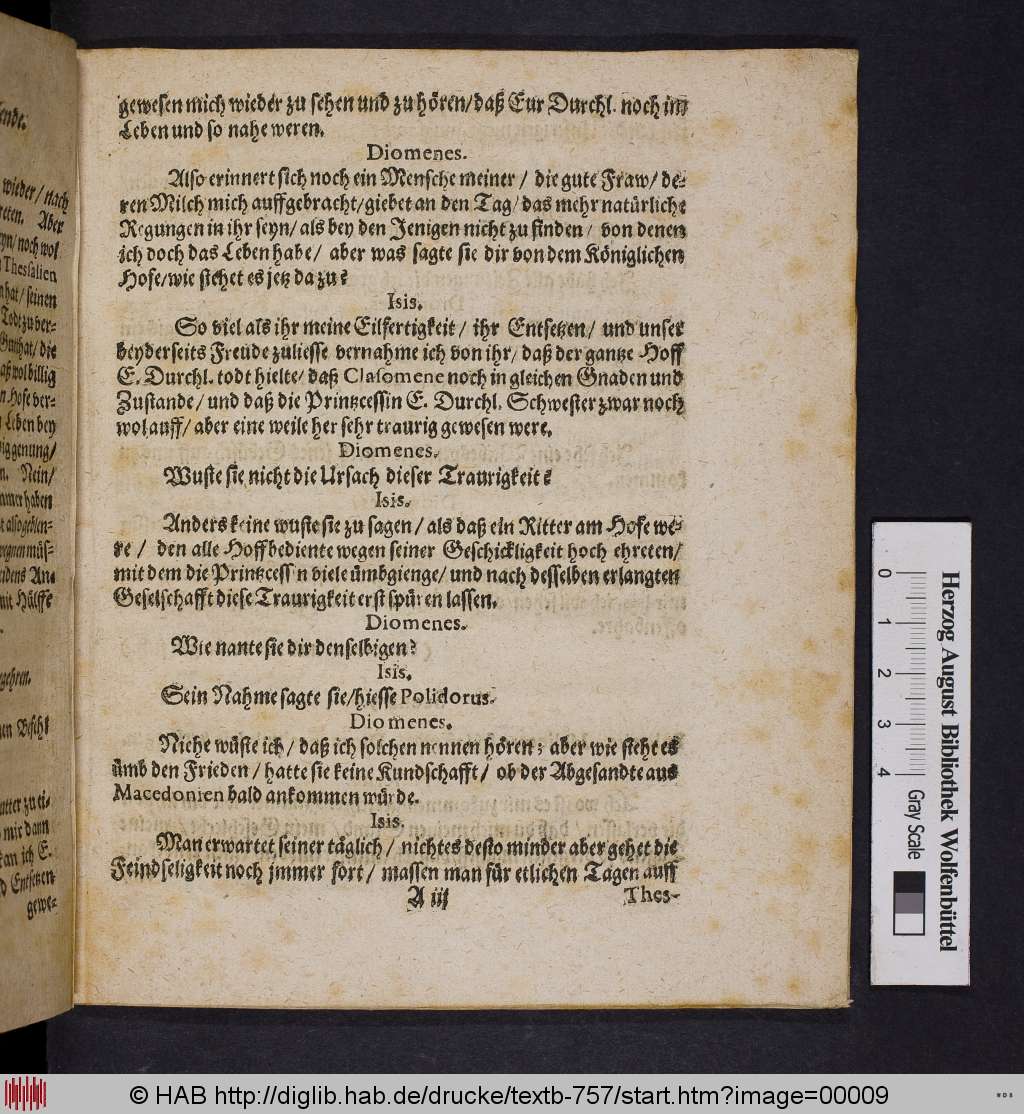 gewesen mich wieder zu sehen und zu hören/daß Eur Durchl. noch im
Leben und so nahe weren.
Diomenes.
Also erinnert sich noch ein Mensche meiner / die gute Fraw/ de-
ren Milch mich auffgebracht/giebet an den Tag/das mehr natürliche
Regungen in ihr seyn/als bey den Jenigen nicht zu finden/ von denen
ich doch das Leben habe/ aber was sagte sie dir von dem Königlichen
Hofe/wie stehet es jetz dazu?
Isis.
So viel als ihr meine Eilfertigkeit/ ihr Entsetzen/ und unser
beyderseits Freude zuliesse vernahme ich von ihr/ daß der gantze Hoff
E. Durchl. todt hielte/ daß Clasomene noch in gleichen Gnaden und
Zustande/ und daß die Printzessin E. Durchl. Schwester zwar noch
wol auff/ aber eine weile her sehr traurig gewesen were.
Diomenes.
Wuste sie nicht die Ursach dieser Traurigkeit?
Isis.
Anders keine wuste sie zu sagen/ als daß ein Ritter am Hofe we-
re / den alle Hoffbediente wegen seiner Geschickligkeit hoch ehreten/
mit dem die Printzessin viele ümbgienge/ und nach desselben erlangten
Geselschafft diese Traurigkeit erst spüren lassen.
Diomenes.
Wie nante sie dir denselbigen?
Isis.
Sein Nahme sagte sie/hiesse Polidorus.
Diomenes.
Niehe wüste ich/ daß ich solchen nennen hören; aber wie steht es
ümb den Frieden/ hatte sie keine Kundschafft/ ob der Abgesandte aus
Macedonien bald ankommen würde.
Isis.
Man erwartet seiner täglich/ nichtes desto minder aber gehet die
Feindseligkeit noch jmmer fort/ massen man für etlichen Tagen auff
A iij
Thes-
wieder/ nach
reten. Aber
seyn/ noch wol
Thessalien
hat/ seinen
Todt zu ver-
Gutthat/ die
daß wol billig
Hofe ver-
Leben bey
Nein/
mmer haben
mit Hülffe
gehren.
Befehl
mir dann
kan ich E.
Entsetzen
gewe-
Herzog August Bibliothek Wolfenbüttel
0 1 2 3 4
Gray Scale
© HAB http://diglib.hab.de/drucke/textb-757/start.htm?image=00009